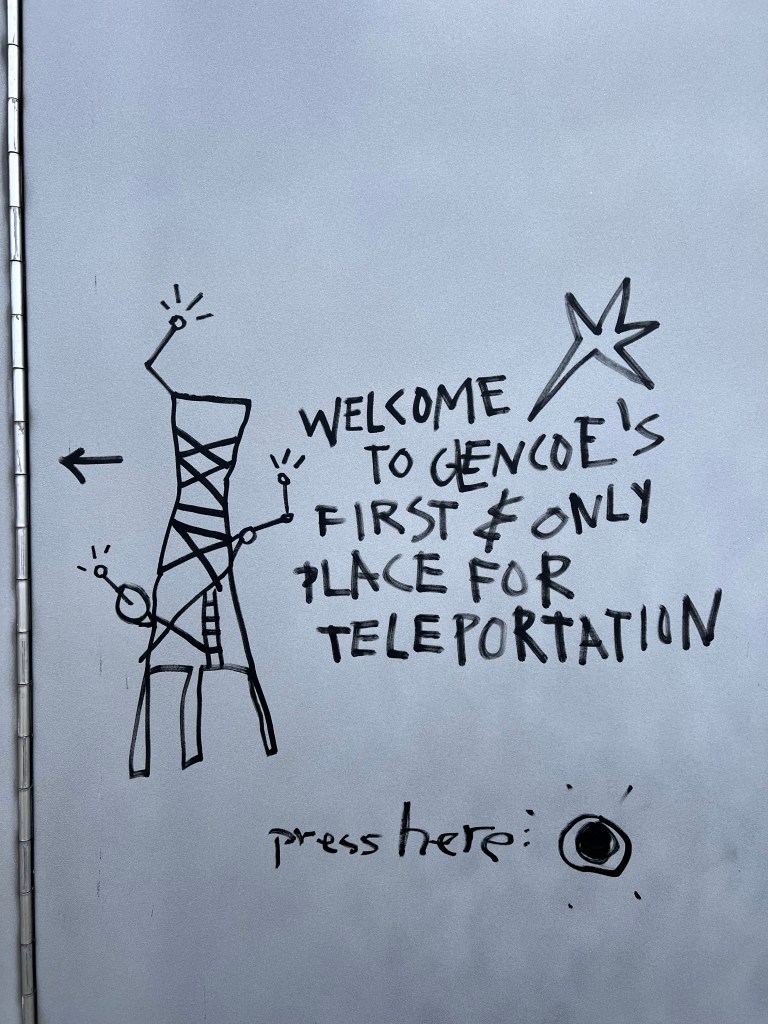 WELCOME
TO GENCOE'S
FIRST & ONLY
PLACE FOR
TELEPORTATION
press here: